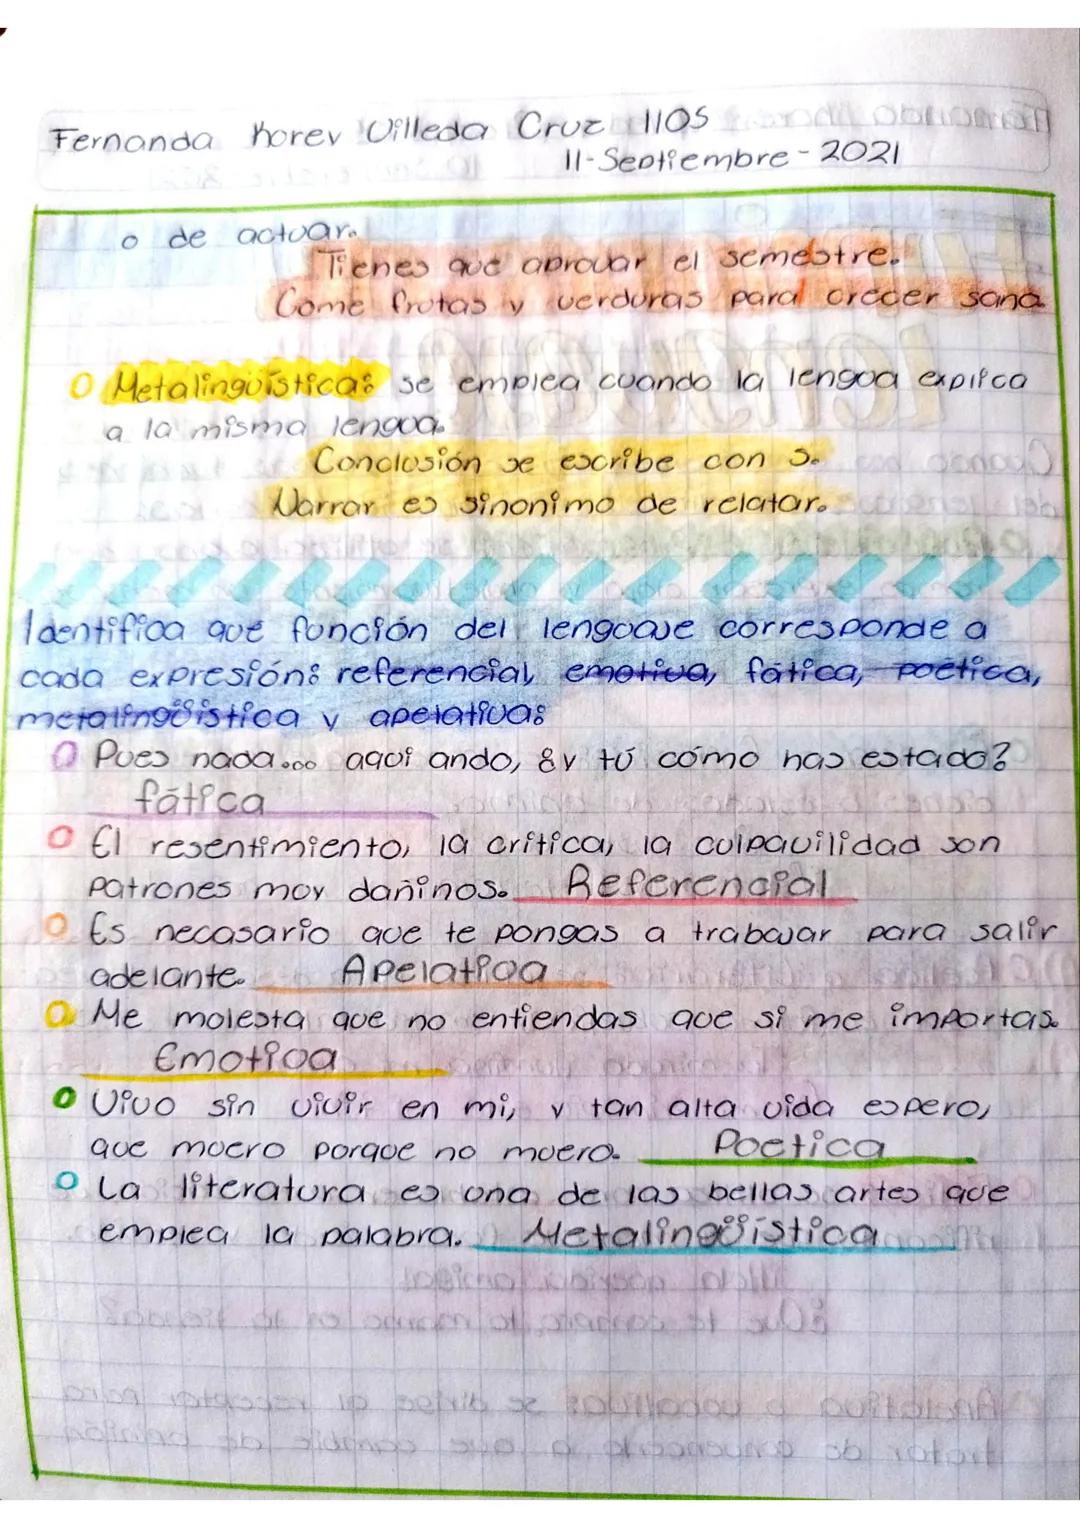 Fernanda Korev Villeda Cruz 1105
11-Septiembre-2021
o de actuar.
Tienes que aprovar el semestre.
Come frutas y verduras para crecer sana
Metalingüistica: se emplea cuando la lengua explica
a la misma lengua.
Conclusión se escribe con s.
Narrar es sinonimo de relatar.
Identifica que función del lenguaje corresponde a
cada expresión: referencial, emotiva, fática, poética,
metalingüistica y apelativa:
Pues nada... aquí ando, ¿y tú cómo has estado?
fática
El resentimiento, la crítica, la culpavilidad son
patrones muy dañinos. Referencial
Es necasario que te pongas a trabajar para salir
adelante. Apelativa
Me molesta que no entiendas que si me importas.
Emotiva
Vivo sin vivir en mi, y tan alta vida espero,
que muero porque no muero. Poetica
La literatura es una de las bellas artes que
emplea la palabra. Metalingüística